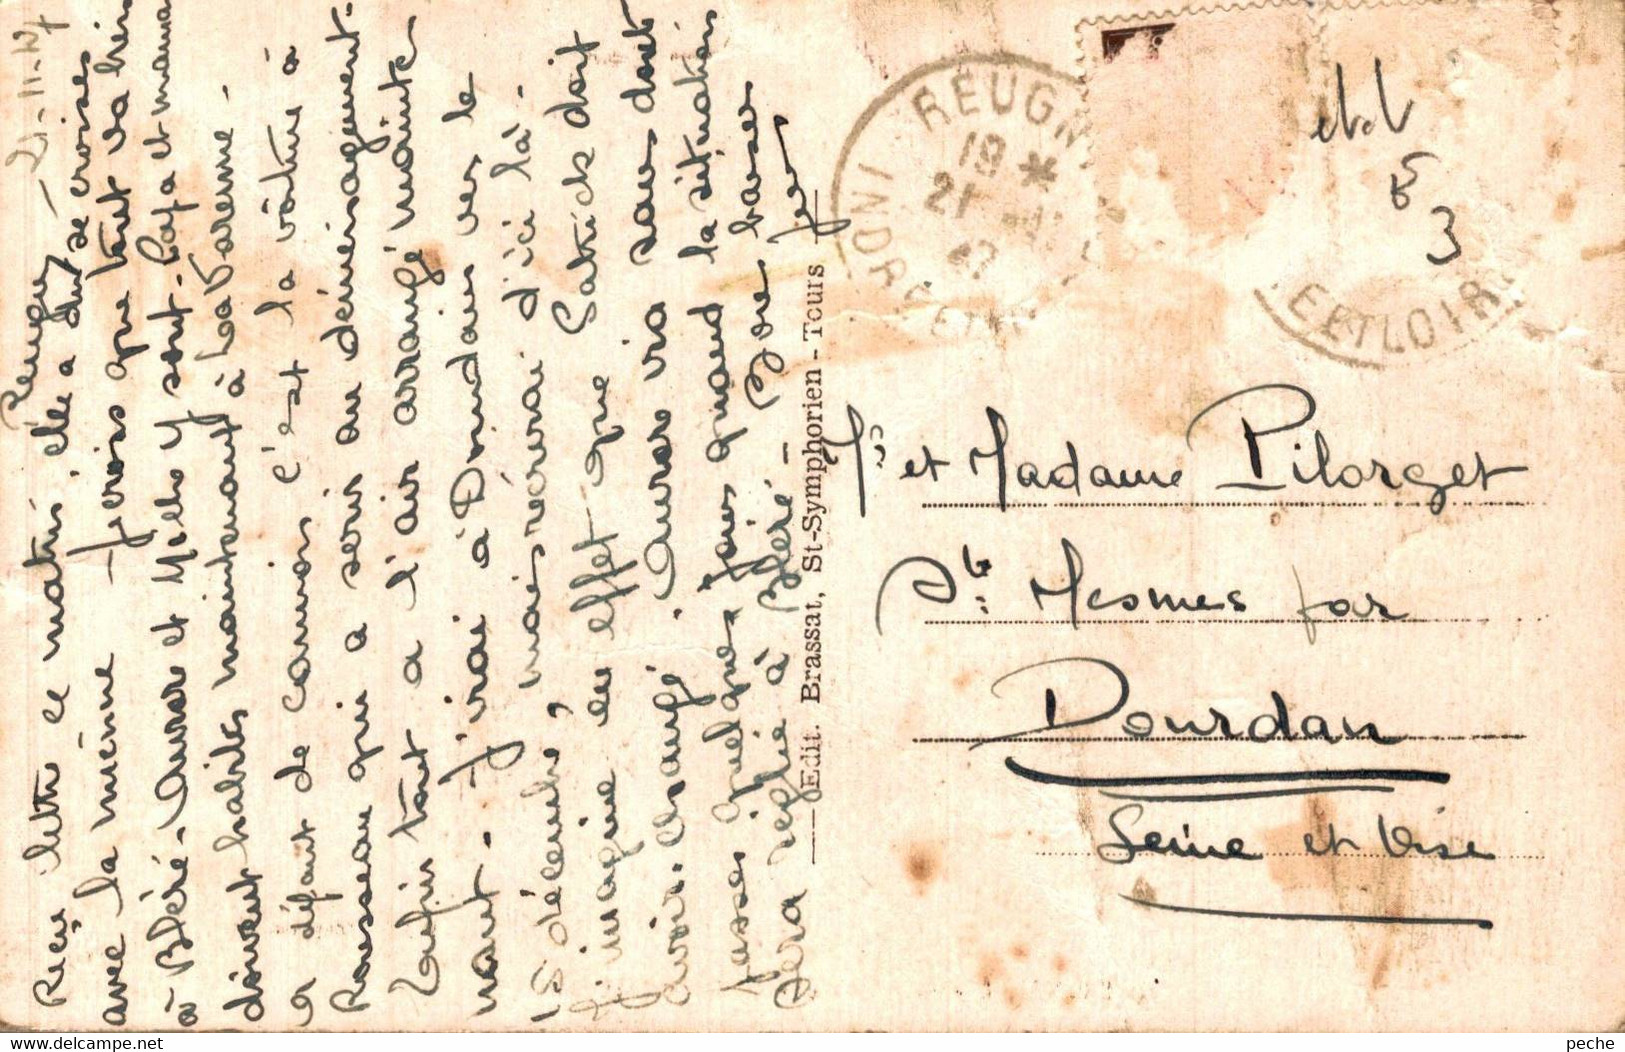 Reugny - 21-11-47
Reçu lettre ce matin, elle a dû se croiser
avec la mienne. Je vois que tout va bien
à Bléré. Auror et y sont. Papa et maman
doivent habiter maintenant à La Varenne.
à défaut de camion c'est la voiture à
Rousseau qui a servi au déménagement.
Enfin tout a l'air arrangé mainte-
nant. J'irai à Dourdan vers le
15 décembre, mais récrirai d'ici là.
J'imagine en effet que Patrick doit
avoir changé. Auror ira sans doute
passer quelques jours quand la situation
sera réglée à Bléré. Bons baisers
Edit. Brassat, St-Symphorien - Tours
REUGNY
19 *
21
47
INDRE ET LOIRE
E ET LOIRE
3
Mr et Madame Pilorget
Ste Mesmes par
Dourdan
Seine et Oise
peche